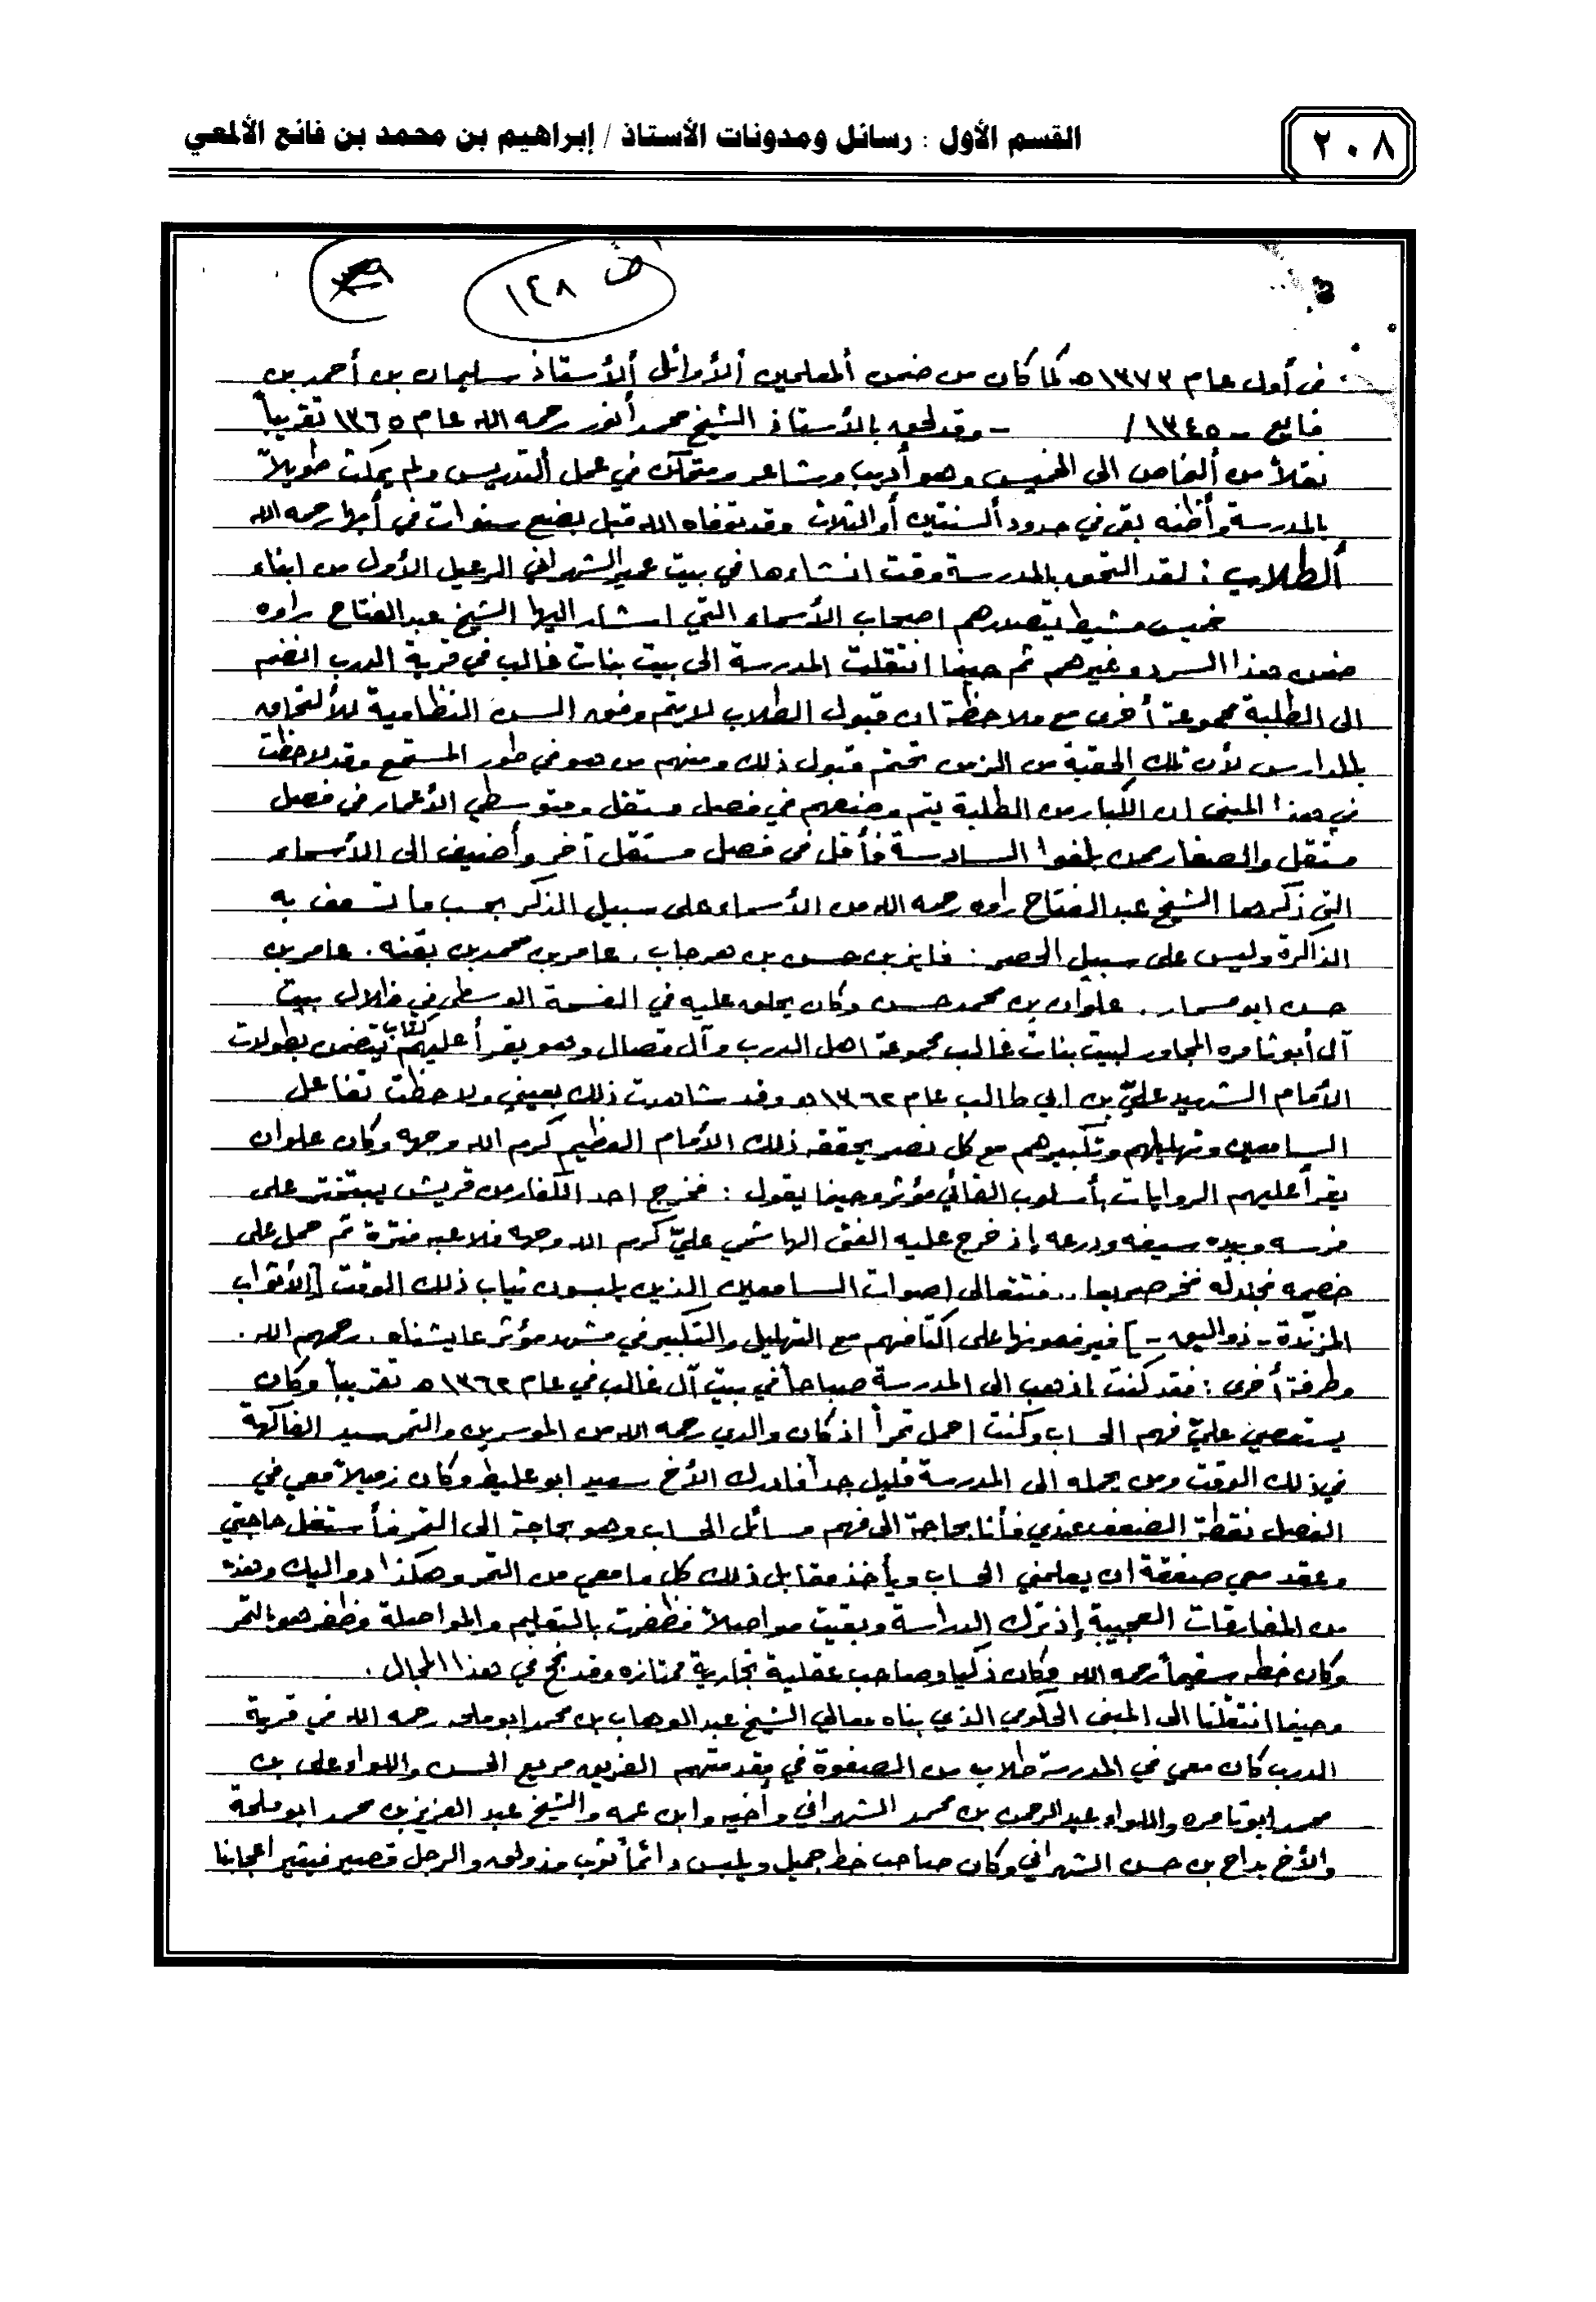 القسم الأول : رسائل ومدونات الأستاذ / إبراهيم بن محمد بن فائع الألمعي
٢٠٨
ص ١٤٨
في أول عام ١٣٧٣ه كما كان من ضمن ألمعلمين ألأوائل ألأستاذ سليمان بن أحمد بن
فائع - ١٣٤٥ / - وقد لحقه بالأستاذ الشيخ محمد أنور رحمه الله عام ١٣٦٥ تقريباً
نقلاً من ألخاص الى الخميس وهو أديب وشاعر ومتمكن في عمل ألتدريس ولم يمكث طويلاً
بالمدرسة وأظنه بقى في حدود ألسنتين أو الثلاث وقد توفاه الله قبل بضع سنوات في أبها رحمه الله
ألطلاب : لقد التحق بالمدرسة وقت انشاءها في بيت عمير الشهراني الرعيل الأول من ابناء
خميس مشيط يتصدرهم اصحاب الأسماء التي اشار اليها الشيخ عبدالفتاح راوه
ضمن هذا السرد وغيرهم ثم حينما انتقلت المدرسة الى بيت بنات غالب في قرية الدرب انضم
الى الطلبة مجموعة أخرى مع ملاحظة ان قبول الطلاب لايتم وفق السن النظامية للألتحاق
بالمدارس لأن تلك الحقبة من الزمن تحتم قبول ذلك ومنهم من هو في طور المستمع وقد لاحظت
في هذا المبنى ان الكبار من الطلبة يتم وضعهم في فصل مستقل ومتوسطي الأعمار في فصل
مستقل والصغار ممن بلغوا السادسة فأقل في فصل مستقل آخر وأضيف الى الأسماء
التي ذكرها الشيخ عبدالفتاح راوه رحمه الله من الأسماء على سبيل الذكر بحسب ما تسعف به
الذاكرة وليس على سبيل الحصر : فايز بن حسن بن هرجاب . عامر بن محمد بن بقنه . عامر بن
حسن ابو مسمار . علوان بن محمد حسن وكان يحلق عليه في الفسحة الوسطى في ظلال بيت
آل أبو ثامره المجاور لبيت بنات غالب مجموعة اهل الدرب وآل قصال وهو يقرأ عليهم كتاب يتضمن بطولات
الأمام الشهيد عليّ بن ابي طالب عام ١٣٦٢ه وقد شاهدت ذلك بعيني ولاحظت تفاعل
السامعين وتهليلهم وتكبيرهم مع كل نصر يحققه ذلك الأمام العظيم كرم الله وجهه وكان علوان
يقرأ عليهم الروايات بأسلوب القائي مؤثر وحينما يقول : فخرج احد الكفار من قريش يتبختر على
فرسه وبيده سيفه ودرعه إذ خرج عليه الفتى الهاشمي عليّ كرم الله وجهه فلاعبه فترة ثم حمل على
خصيمه فجندله فخر صريعا .. فتتعالى اصوات السامعين الذين يلبسون ثياب ذلك الوقت [ الأثواب
المزندة - ذو اليق - ] فيرفعونها على اكتافهم مع التهليل والتكبير في مشهد مؤثر عايشناه . رحمهم الله .
وطرفة أخرى : فقد كنت اذهب الى المدرسة صباحاً في بيت آل غالب في عام ١٣٦٢ه تقريباً وكان
يستعصي عليّ فهم الحساب وكنت احمل تمراً اذ كان والدي رحمه الله من الموسرين والتمر سيد الفاكهة
في ذلك الوقت ومن يحمله الى المدرسة قليل جداً فادرك الأخ سعيد ابو عليط وكان زميلاً معي في
الفصل نقطة الضعف عندي فأنا بحاجة الى فهم مسائل الحساب وهو بحاجة الى التمر فأستغل حاجتي
وعقد معي صفقة ان يعلمني الحساب ويأخذ مقابل ذلك كل مامعي من التمر وهكذا دواليك وهذه
من المفارقات العجيبة إذ ترك الدراسة وبقيت مواصلاً فظفرت بالتعليم والمواصلة وظفر هو بالتمر
وكان خطه سقيماً رحمه الله وكان ذكيا وصاحب عقلية تجارية ممتازه وقد نجح في هذا المجال .
وحينما انتقلنا الى المبنى الحكومي الذي بناه معالي الشيخ عبدالوهاب بن محمد ابو ملحه رحمه الله في قرية
الدرب كان معي في المدرسة طلاب من الصفوة في مقدمتهم الفريق مريع الحسن واللواء على بن
محمد ابو ثامره واللواء عبدالرحمن بن محمد الشهراني وأخيه وابن عمه والشيخ عبد العزيز بن محمد ابو ملحة
والأخ بداح بن حسن الشهراني وكان صاحب خط جميل ويلبس دائماً ثوب مذولق والرجل قصير فيثير اعجابنا